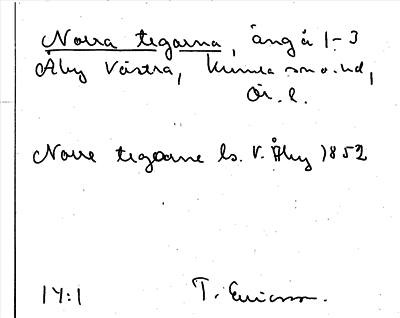 Norra tegarna, ängå 1-3
Åby Västra, Kumla sn o. hd,
Ör. l.
Norre tegarne ls. V. Åby 1852
14:1 T. Ericsson.